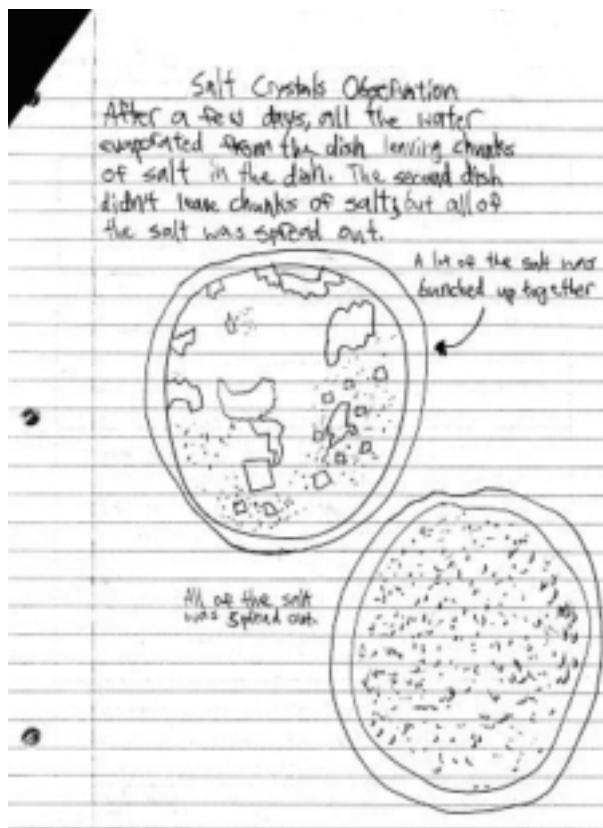 Salt Crystals Observation
After a few days, all the water
evaporated from the dish leaving chunks
of salt in the dish. The second dish
didn't leave chunks of salt, but all of
the salt was spread out.
A lot of the salt was
bunched up together
All of the salt
was spread out.